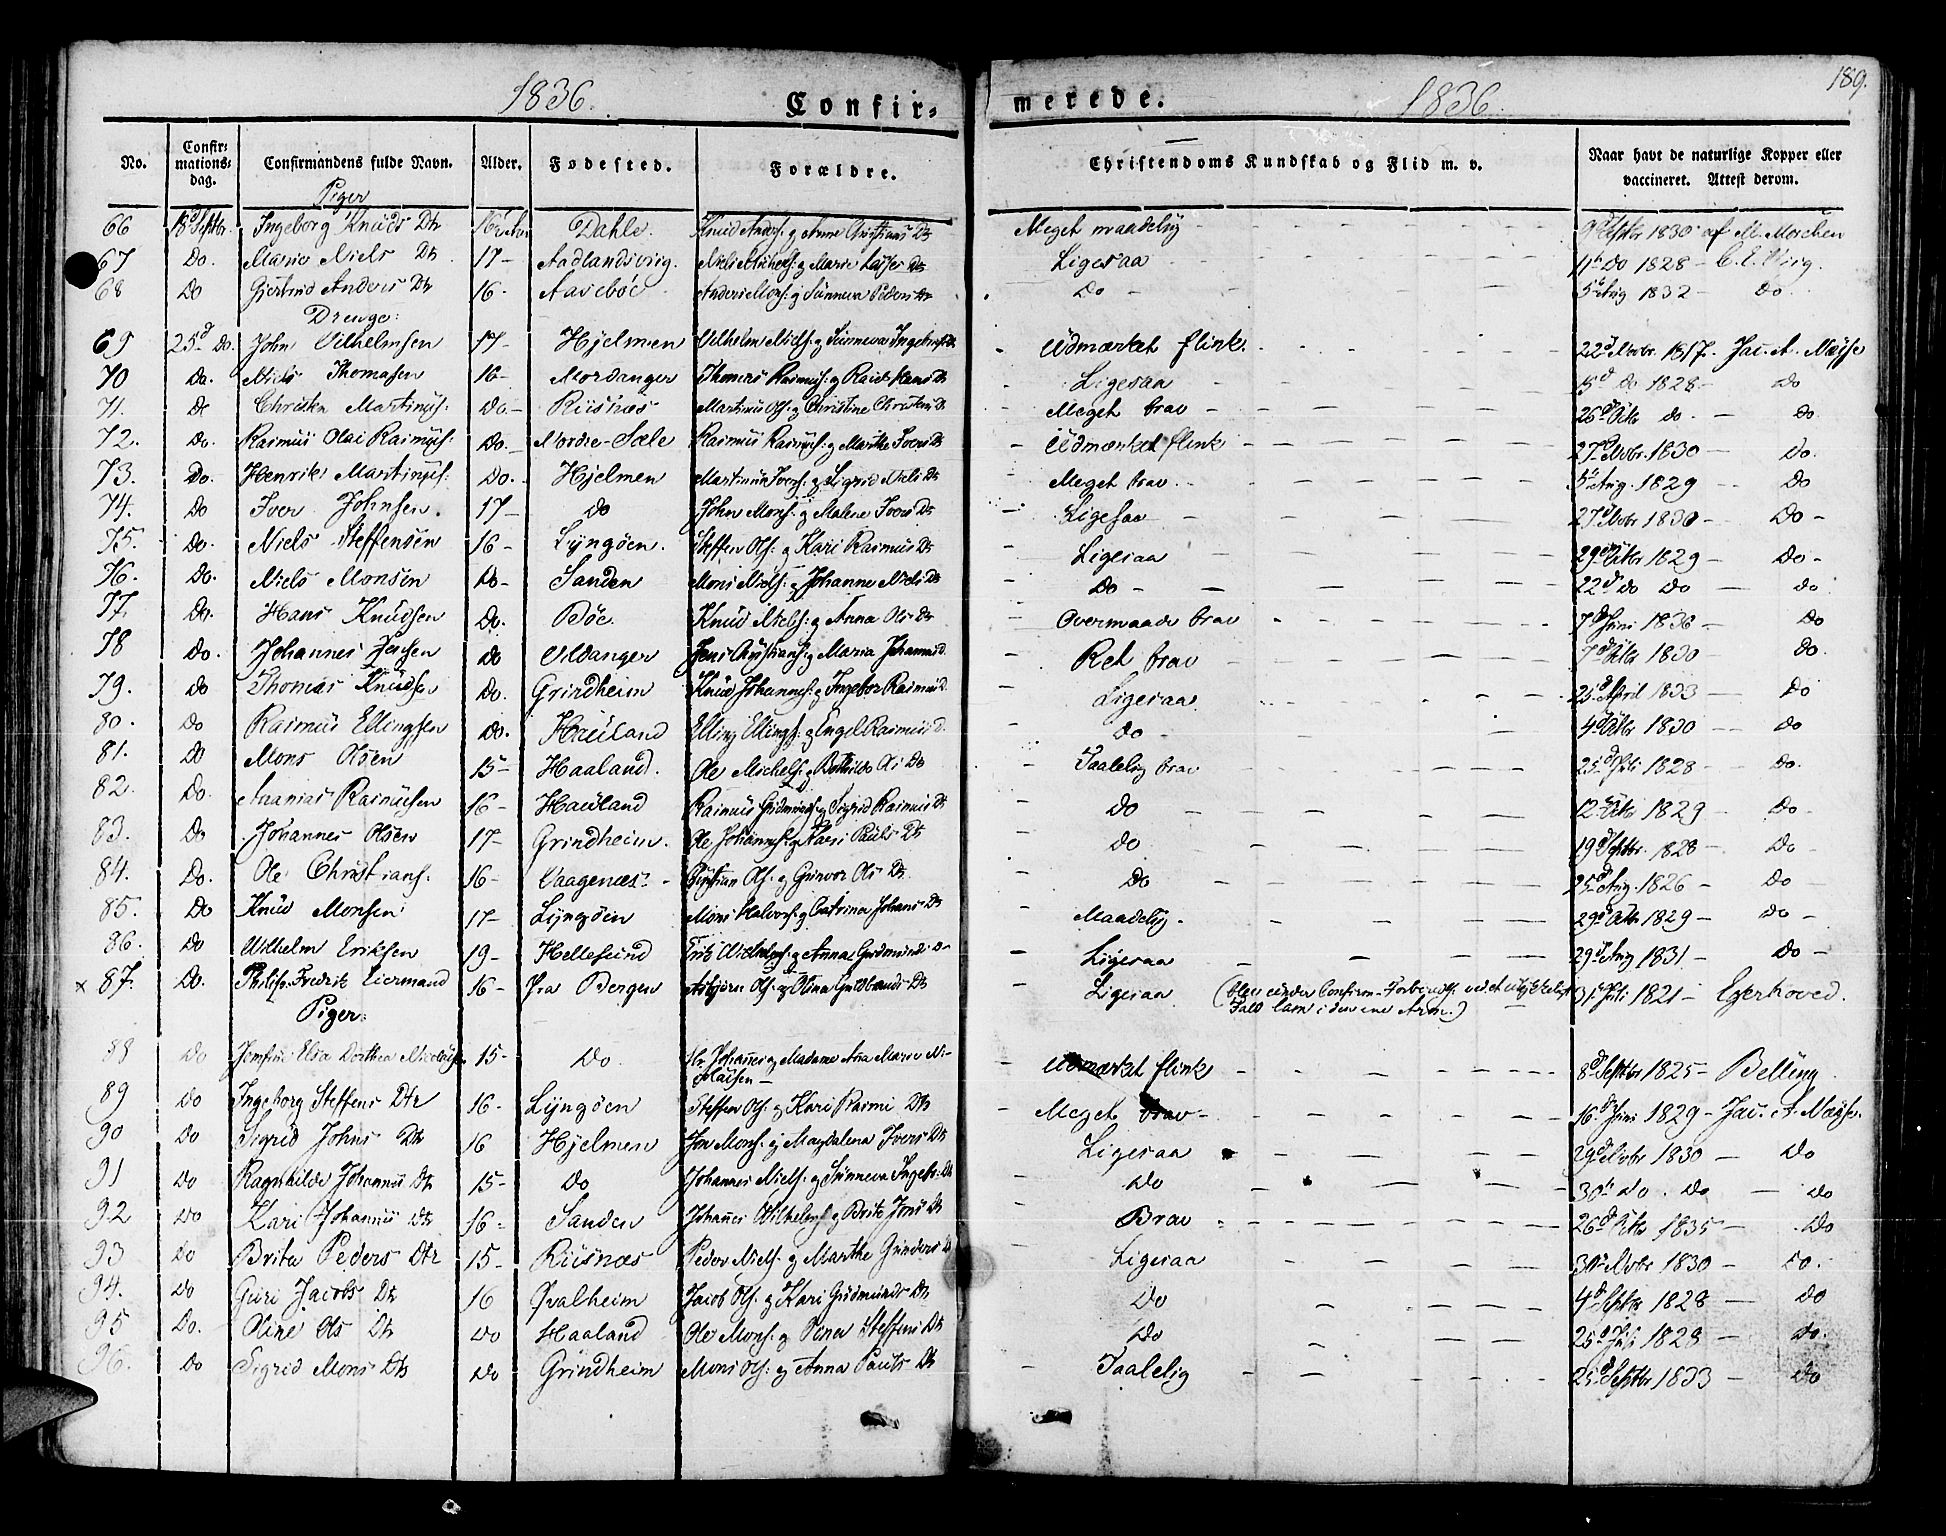 1836. Confir= merede. 1836. 189.
No. Confir= mations= dag. Confirmandens fulde Navn. Alder. Fødested. Forældre. Christendoms Kundskab og Flid m. v. Naar havt de naturlige Kopper eller vaccineret. Attest derom.
Piger
66 18d Septbr. Ingeborg Knuds Dtr 16 Dahle. Knud Anders: g Anne Christians Dtr Meget maadelig 1830 af M. Morchen
67 Do. Marie Niels Dtr 17- Aadlandsvig. Niels Michels: g Marie Dtr Ligesaa 11 Do 1828 - C. E. Virg.
68 Do Giertrud Anders Dtr 16- Aasebøe Anders Mons: g Sünneva Peders Dtr Do - 5 Aug 1832 - Do
Drenge:
69 25d Do. John Vilhelmsen 17- Hjelmen Vilhelm Niels: g Sünneva Udmærket flink. 22d Novbr. 1817. Jac. A. Møyse
70 Do. Niels Thomasen 16- Mordanger Thomas Rasmus: g Hans Dtr Ligesaa 15d Do 1828 - Do
71. Do Christen Martinus: Do- Riisnæs Martinus Ols: g Christine Christens D. Meget brav 26d Octbr Do. - Do.
72. Do. Rasmus Olai Rasmus: Do. Nordre-Sæle Rasmus Rasmus: g Marthe Ivers Dtr Udmærket flink 27d Novbr. 1830 - Do.
73. Do. Henrik Martinus: Do. Hjelmen Martinus Ivers: g Sigrid Niels Dtr Meget brav. 5 Aug. 1829 - Do
74. Do Iver Johnsen. 17- Do John Mons: g Malene Ivers Dtr Ligesaa 27d Novbr 1830 - Do -
75. Do. Niels Steffensen 16- Lyngøen. Steffen Ols: g Kari Rasmus Dtr Ligesaa 29 Octbr 1829 - Do -
76. Do. Niels Monsen Do- Sanden Mons Niels: g Johanne Niels Dtr Do - 22d Do Do - Do
77. Do. Hans Knudsen Do. Bøe. Knud Niels: g Anna Ols Dtr Overmaade brav 7d Juni 1836 - Do
78 Do. Johannes Jensen Do Vildanger Jens Christians: g Maria Johannes D. Ret brav 7d Octbr 1830 - Do.
79. Do Thomas Knudsen Do. Grindheim Knud Johannes: g Ingebor Rasmus D. Ligesaa 25d April 1833 - Do
80. Do Rasmus Ellingsen Do. Hauland Elling Ellings: g Engel Rasmus D. Do - 4d Octbr 1830 - Do
81. Do Mons Olsen 15- Haaland. Ole Michels: g Bothilde Ols Do Taalelig brav 25d Juli 1828 - Do.
82. Do. Ananias Rasmusen 16- Hauland Rasmus Gudmunds: g Sigrid Rasmus Dtr Do 12 Octbr 1829 - Do.
83. Do Johannes Olsen 17- Grindheim. Ole Johannes: g Kari Pauls Dtr Do. 19d Septbr. 1828 - Do -
84. Do. Ole Christians: 16- Vaagenæs. Christian Ols: g Gunvor Ols Dtr Do 25d Aug. 1826 - Do -
85. Do Knud Monsen 17- Lyngøen Mons Halvors: g Catrina Johans Dtr Maadelig. 29d Octbr 1829 - Do -
86. Do Wilhelm Eriksen 19- Hellesund Erik Wilhelms: g Anna Gudmunds D- Ligesaa 29d Aug 1831 - Do -
x 87. Do. Philip Fredrik Eiermand 16- fra Bergen Asbjørn Ols: g Olina Guldbrands Dtr Ligesaa (blev under Confirm-Forbereds: ved et ulykkeligt Fald lam i den ene Arm.) 31 Juli 1821 - Egerhoved.
Piger=
88 Do Jomfrue Elsa Dorthea Nicolaisen 15- Do. Hr. Johannes g Madame Ana Marie Nicolaisen - Udmærket flink 8d Septbr 1825 - Belling
89 Do Ingeborg Steffens Dtr 16- Lyngøen Steffen Ols: g Kari Rasmi Dtr Meget brav - 16d Juni 1829 - Jac. A. Møyse.
90 Do Sigrid Johns Dtr 16 Hjelmen Jon Mons: g Magdalena Ivers Dtr Ligesaa 29d Novbr 1830 - Do
91 Do Ragnhilde Johannis Dtr 15- Do Johannes Niels: g Sünneva Dtr Do 30te Do. Do - Do
92 Do Kari Johannis Dtr 16- Sanden Johannes Wilhelms: g Brite Jons Dtr Brav 26d Octbr 1835 - Do
93 Do Brita Peders Dtr 15- Riisnæs Peder Niels: g Marthe Gunders D Ligesaa 30te Novbr 1830 - Do.
94. Do Guri Jacobs Dtr 16 Qvalheim Jacob Ols: g Kari Gudmunds Dtr Do 4d Septbr 1828 - Do
95 Do. Oline Ols Dtr Do Haaland Ole Mons: g Oline Steffens Dtr Do 25d Juli 1828 - Do.
96. Do Sigrid Mons Dtr Do Grindheim Mons Ols: g Anna Pauls Dtr Taalelig 25d Septbr 1833 - Do